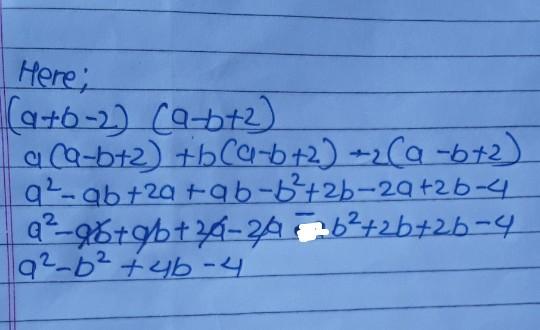 Here;
(a+b-2) (a-b+2)
a(a-b+2) +b(a-b+2) -2(a-b+2)
a²-ab+2a+ab-b²+2b-2a+2b-4
a²-ab+ab+2a-2a -b²+2b+2b-4
a²-b²+4b-4